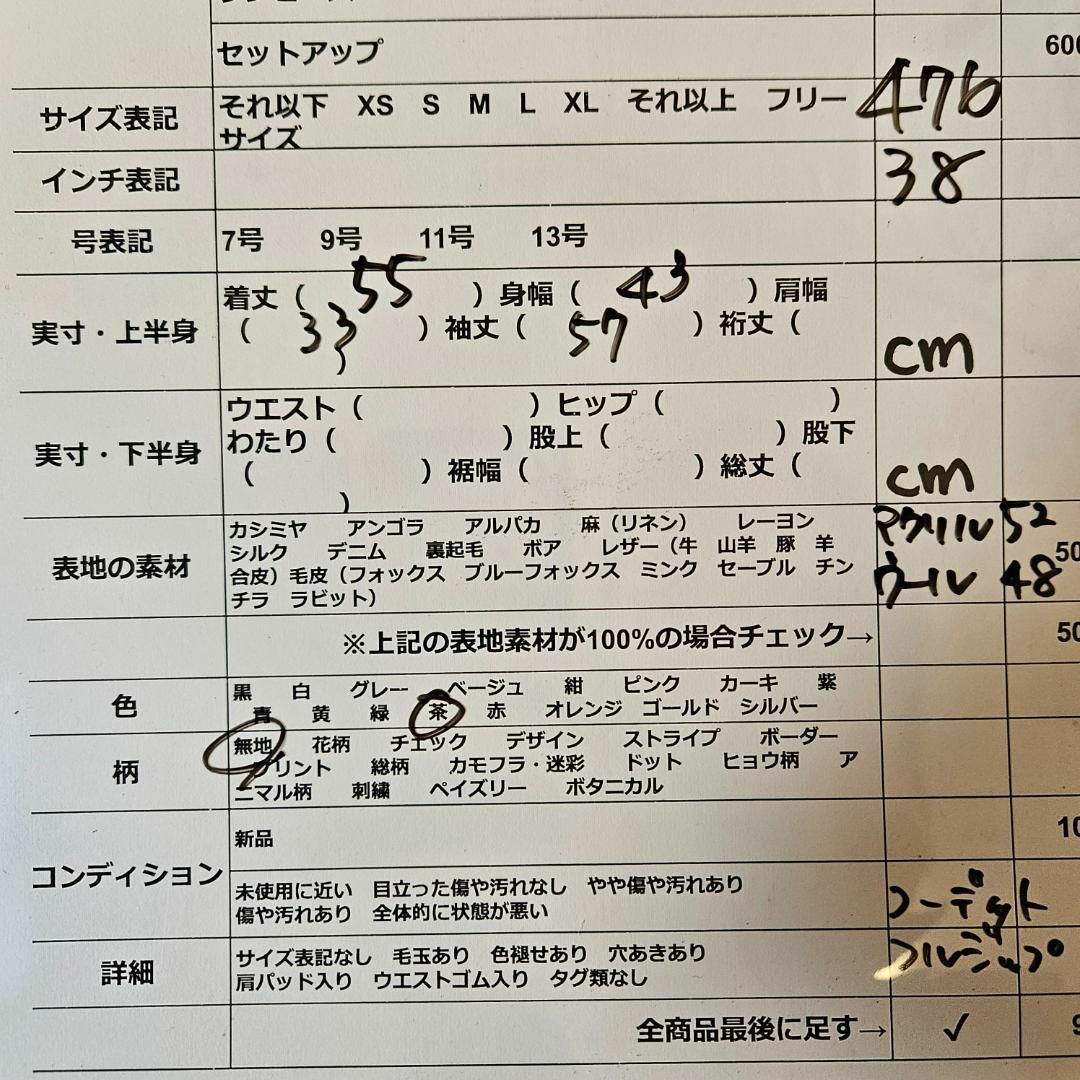 セットアップ
600
サイズ表記
それ以下 XS S M L XL それ以上 フリー
サイズ
476
インチ表記
38
号表記
7号 9号 11号 13号
実寸・上半身
着丈( 55 )身幅( 43 )肩幅
( 33 )袖丈( 57 )裄丈(
)
cm
実寸・下半身
ウエスト( )ヒップ( )
わたり( )股上( )股下
( )裾幅( )総丈(
)
cm
表地の素材
カシミヤ アンゴラ アルパカ 麻(リネン) レーヨン
シルク デニム 裏起毛 ボア レザー(牛 山羊 豚 羊
合皮)毛皮(フォックス ブルーフォックス ミンク セーブル チン
チラ ラビット)
アクリル 52
ウール 48
50
※上記の表地素材が100%の場合チェック→
50
色
黒 白 グレー ベージュ 紺 ピンク カーキ 紫
青 黄 緑 茶 赤 オレンジ ゴールド シルバー
柄
無地 花柄 チェック デザイン ストライプ ボーダー
プリント 総柄 カモフラ・迷彩 ドット ヒョウ柄 ア
ニマル柄 刺繍 ペイズリー ボタニカル
コンディション
新品
10
未使用に近い 目立った傷や汚れなし やや傷や汚れあり
傷や汚れあり 全体的に状態が悪い
コーデット
詳細
サイズ表記なし 毛玉あり 色褪せあり 穴あきあり
肩パッド入り ウエストゴム入り タグ類なし
フルジップ
全商品最後に足す→ ✓ 9